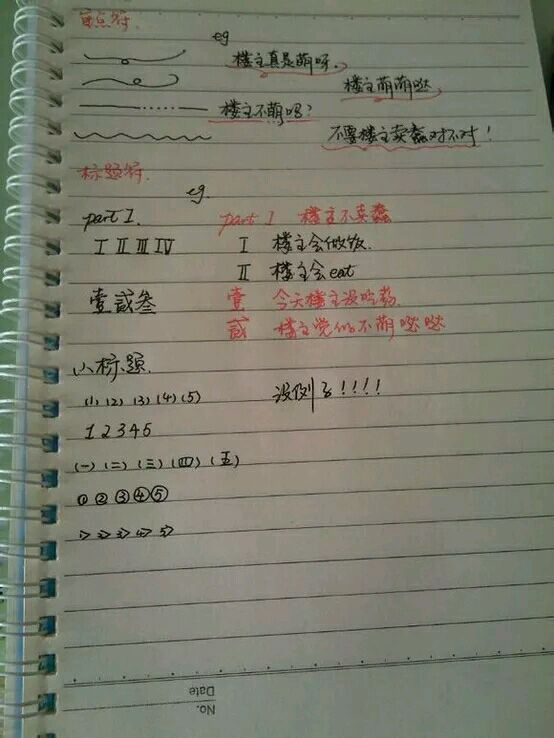 重点符
eg
楼主真是萌呀.
楼主萌萌哒
楼主不萌吗?
不要楼主卖蠢对不对!
标题符.
eg.
part I. part I 楼主不卖蠢
I II III IV I 楼主会做饭.
II 楼主会eat
壹贰叁 壹 今天楼主没吃药
贰 楼主觉得不萌哒哒
小标题.
(1) (2) (3) (4) (5) 没例子!!!!
1 2 3 4 5
(一) (二) (三) (四) (五)
① ② ③ ④ ⑤
1> 2> 3> 4> 5>
No.
Date